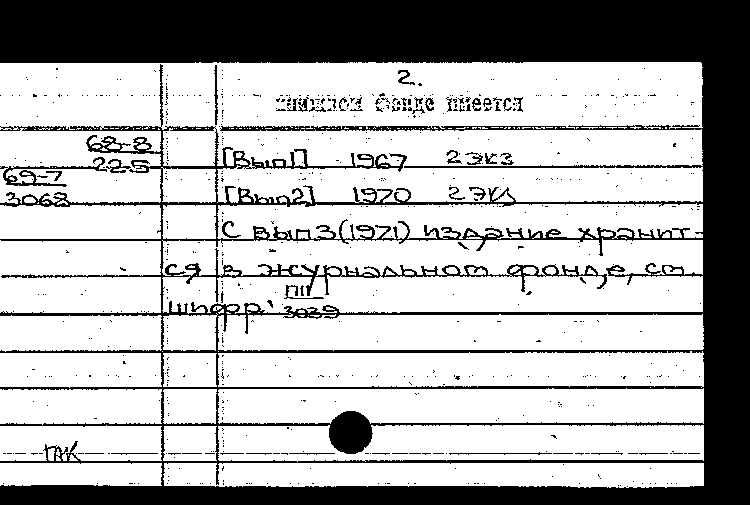 2.
книжном фонде имеется
68-8
22-5
[Вып1] 1967 2 экз
69-7
3068
[Вып2] 1970 2 экз
С вып 3 (1971) издание хранит-
ся в журнальном фонде, см.
шифр: ПП
3039
ГАК